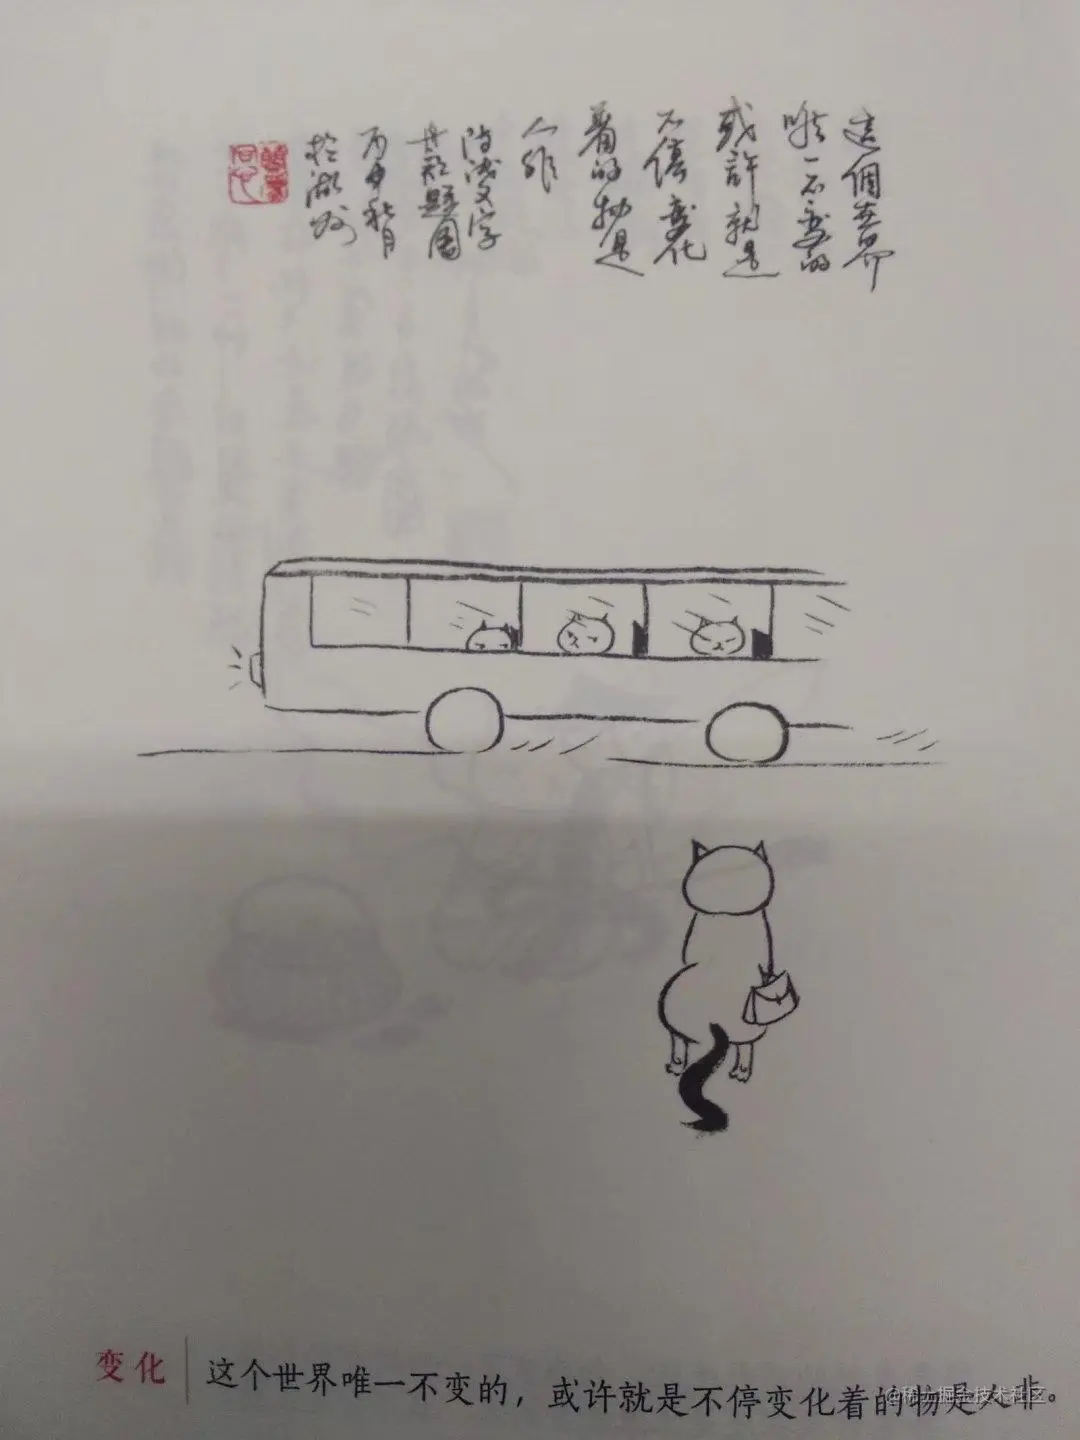 這個世界
唯一不变的
或許就是
不停变化
着的物是
人非
丙申秋月
於湖州
变化
这个世界唯一不变的，或许就是不停变化着的物是人非。
@稀土掘金技术社区